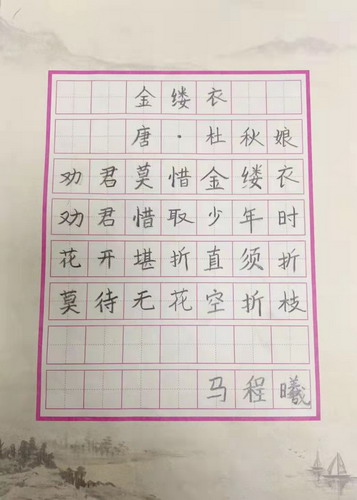 金缕衣
唐·杜秋娘
劝君莫惜金缕衣
劝君惜取少年时
花开堪折直须折
莫待无花空折枝
马程曦